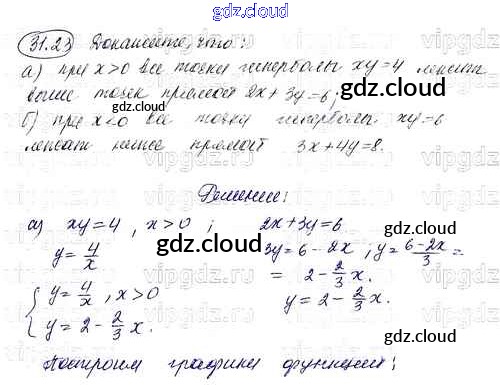 gdz.cloud
31.23 Докажите, что:
а) при x>0 все точки гиперболы xy=4 лежат
выше точек прямой 2x+3y=6;
б) при x<0 все точки гиперболы xy=6
лежат ниже прямой 3x+4y=8.
Решение:
а) xy=4, x>0; 2x+3y=6
y=4/x 3y=6-2x; y=(6-2x)/3=
= 2-2/3x.
{ y=4/x, x>0 y=2-2/3x.
{ y=2-2/3x.
Построим графики функций:
gdz.cloud
gdz.cloud
gdz.cloud
gdz.cloud
gdz.cloud
vipgdz.ru